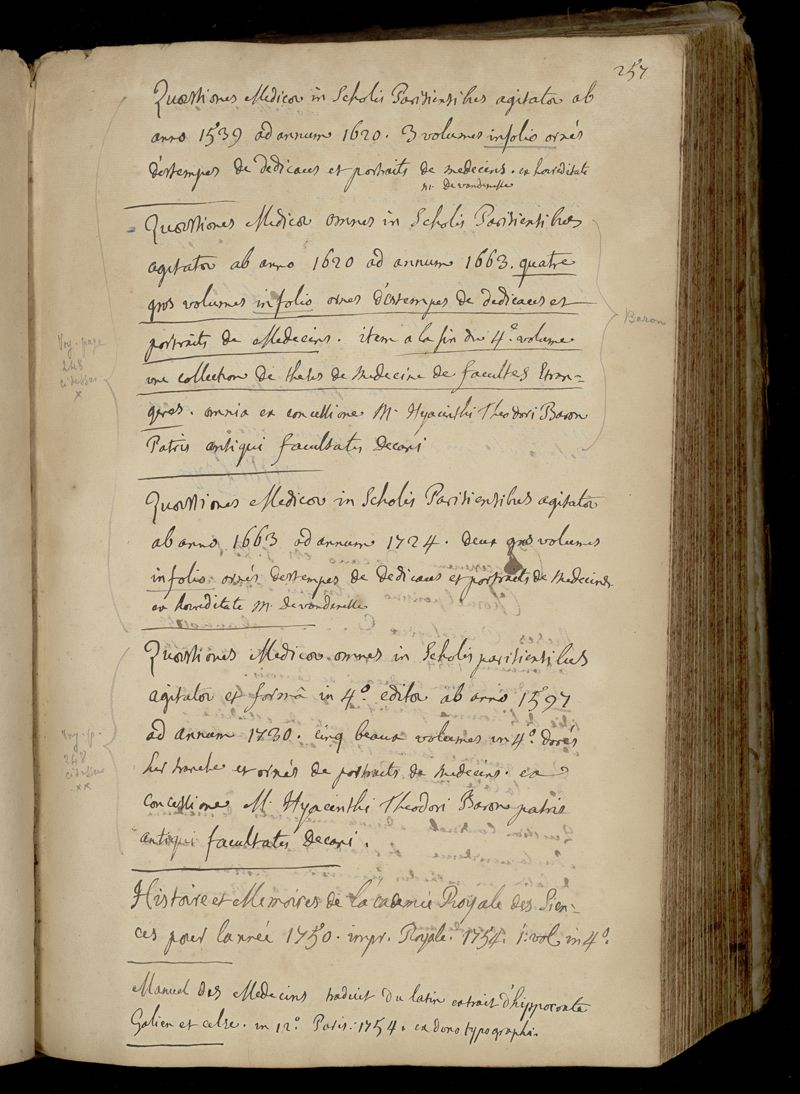 257
Quæstiones Medicæ in Scholis Parisiensibus agitatæ ab
anno 1539 ad annum 1620. 3 volumes infolio ornés
d'estempes de dedicaces et portraits de medecins. ex hæreditate
M. De vandenesse
Quæstiones Medicæ omnes in Scholis Parisiensibus
agitatæ ab anno 1620 ad annum 1663. quatre
gros volumes infolio ornes d'estempes de dedicaces et
portraits de Medecins. item a la fin du 4.º volume
une collection de theses de medecine de facultes Etran-
geres. omnia ex concessione M. Hyacinthi Theodori Baron
Patris antiqui facultatis Decani
Baron
Voy. page
248
ci dessus
x
Quæstiones Medicæ in Scholis Parisiensibus agitatæ
ab anno 1663 ad annum 1724. deux gros volumes
infolio ornés destempes de dedicaces et portraits de Medecins
ex hæreditate M. De vandenesse
Quæstiones Medicæ omnes in Scholis parisiensibus
agitatæ et formâ in 4.º editæ ab anno 1597
ad annum 1730. cinq beaux volumes in 4.º dorés
sur tranche et ornés de portraits de medecins. ex
concessione M. Hyacinthi Theodori Baron patris
antiqui facultatis Decani.
Voy. p.
248
ci dessus
xx
Histoire et Memoires de lacademie Royale des Scien-
ces pour lannée 1750. impr. Royale. 1754. 1. vol in 4.º
Manuel des Medecins traduit du latin extrait d'hippocrate
Galien et celse. in 12.º Paris. 1754. ex dono typographi.